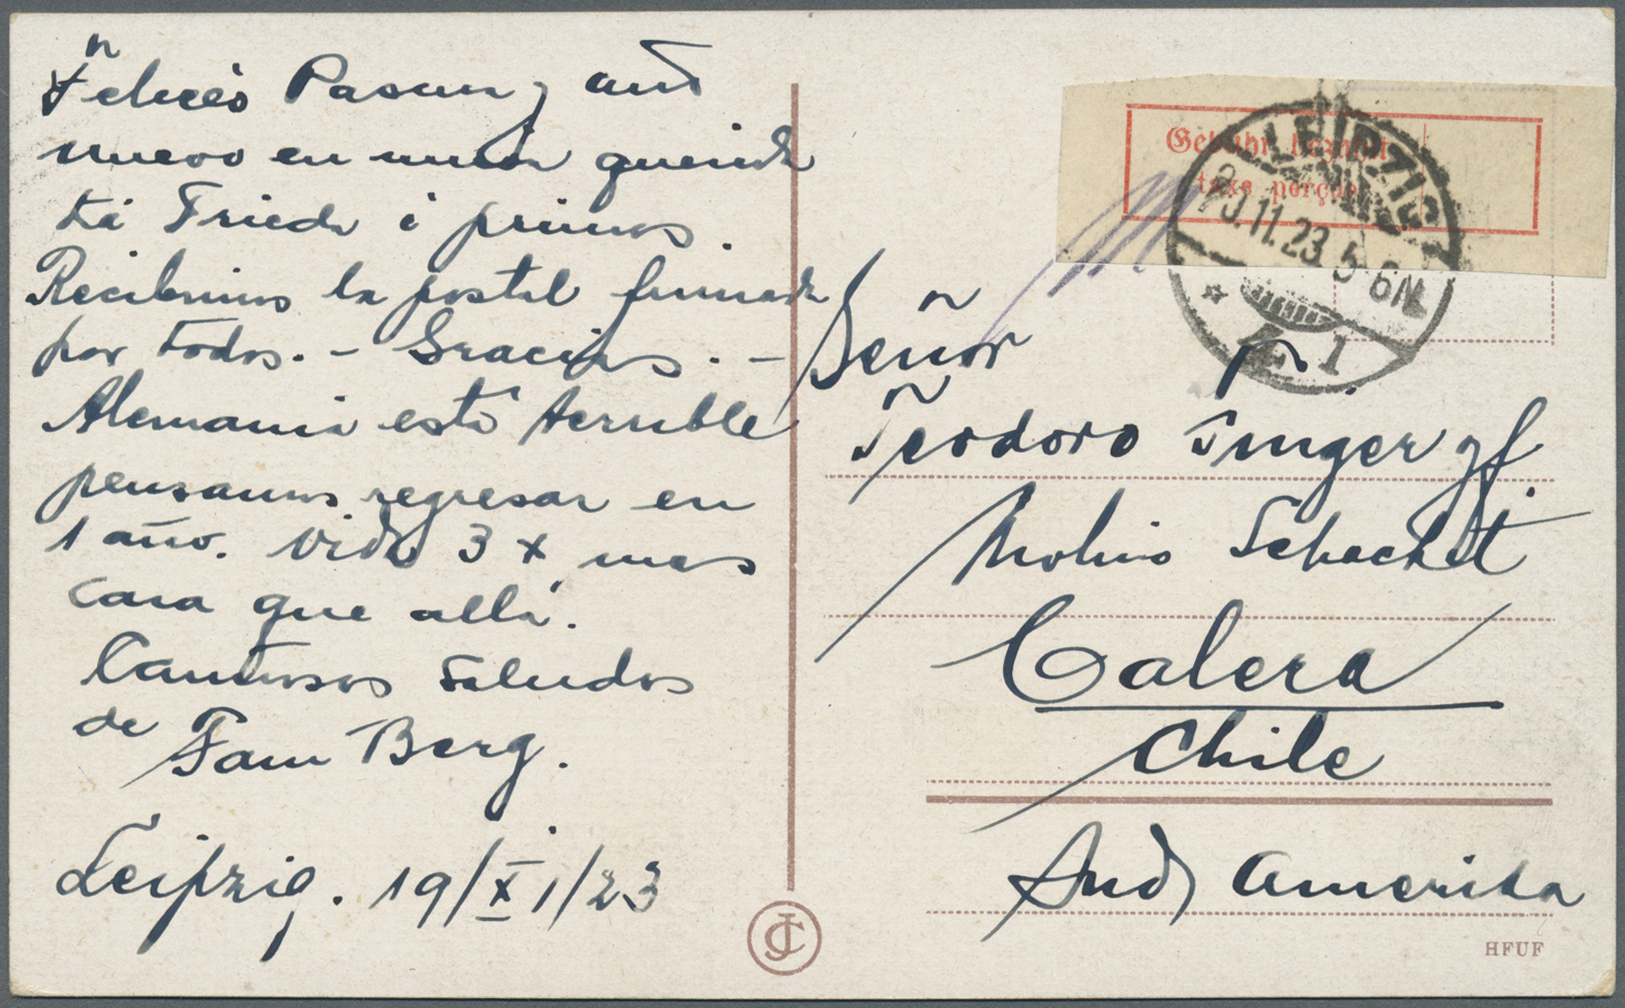 Felices Pascuas y año
nuevo en union querida
tia Frieda i primos.
Recibimos la postal firmada
por todos. - Gracias. -
Alemania está terrible
pensamos regresar en
1 año. Vida 3 x mas
cara que allá.
Cariñosos saludos
de Fam Berg.
Leipzig. 19/XI/23
Gebühr bezahlt
taxe perçue
LEIPZIG
20.11.23 5-6N.
* 1
Señor
Teodoro
Molino Schacht
Calera
Chile
Süd Amerika
JC
HFUF